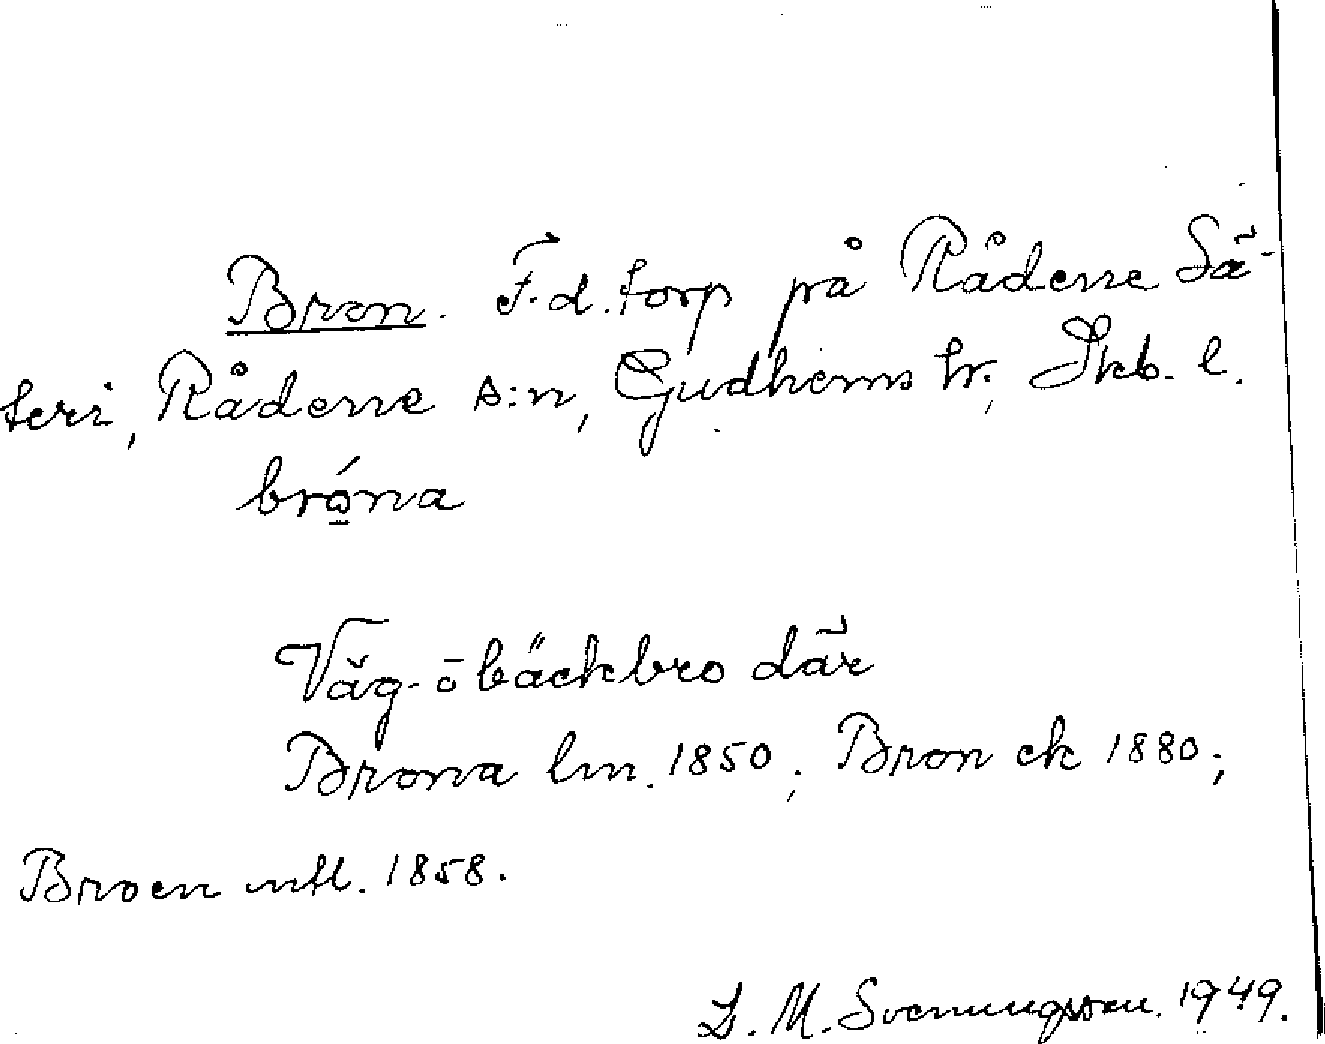 Bron. F.d. torp på Råderne Sä-
teri, Råderne s:n, Gudhems hr, Skb. l.
bró̱na
Väg- o bäckbro där
Brona lm. 1850; Bron ek 1880;
Broen mtl. 1858.
L. M. Svenungsson. 1949.